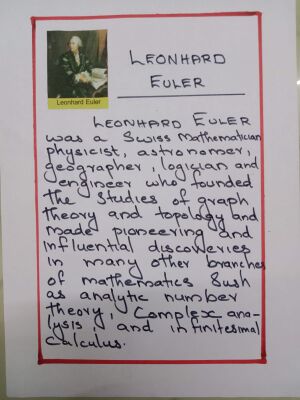 LEONHARD
EULER
Leonhard Euler
LEONHARD EULER
was a Swiss Mathematician
physicist, astronomer,
geographer, logician and
engineer who founded
the studies of graph
theory and topology and
made pioneering and
influential discoveries
in many other branches
of mathematics Sush
as analytic number
theory, Complex ana-
lysis, and infinitesimal
Calculus.